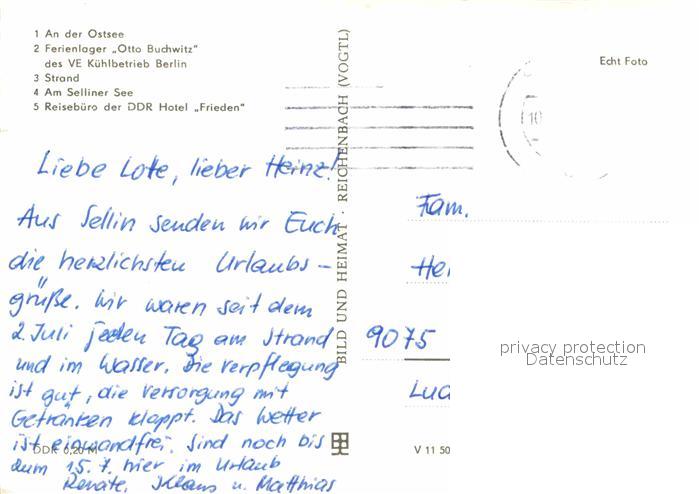 1 An der Ostsee
2 Ferienlager „Otto Buchwitz"
des VE Kühlbetrieb Berlin
3 Strand
4 Am Selliner See
5 Reisebüro der DDR Hotel „Frieden"
Liebe Lotte, lieber Heinz!
Aus Sellin senden wir Euch
die herzlichsten Urlaubs-
grüße. Wir waren seit dem
2. Juli jeden Tag am Strand
und im Wasser. Die Verpflegung
ist gut, die Versorgung mit
Getränken klappt. Das Wetter
ist einwandfrei. Sind noch bis
zum 15.7. hier im Urlaub
Renate, Klaus u. Matthias
DDR 0,20 M
BILD UND HEIMAT · REICHENBACH (VOGTL)
Echt Foto
10
Fam.
Hei
9075
Luc
V 11 50
privacy protection
Datenschutz